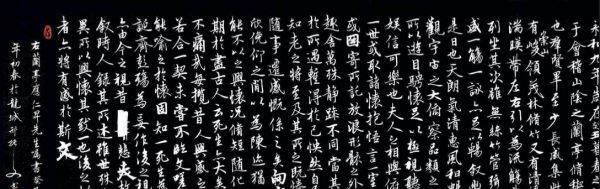 永和九年歲在癸丑暮春
于會稽山陰之蘭亭脩禊
也羣賢畢至少長咸集
有崇山峻領茂林脩竹又有清
湍暎帶左右引以為流觴
列坐其次雖無絲竹管弦
盛一觴一詠亦足以暢敘
是日也天朗氣清惠風和
觀宇宙之大俯察品類
所以遊目騁懷足以極視聽
娛信可樂也夫人之相與俯
一世或取諸懷抱悟言一室
或因寄所託放浪形骸之外
趣舍萬殊靜躁不同當其
於所遇暫得於己怏然自
知老之將至及其所之既
隨事遷感慨係之矣向
欣俛仰之閒以為陳迹猶
能不以之興懷況脩短隨化
期於盡古人云死生亦大
不痛哉每攬昔人興感
若合一契未嘗不臨文嗟
喻之於懷固知一死生
誕齊彭殤為妄作後之視
亦由今之視昔悲夫故
敘時人錄其所述雖世殊
異所以興懷其致一也後之
者亦將有感於斯文
右蘭亭序仁昇先生屬書
年初春於龍城